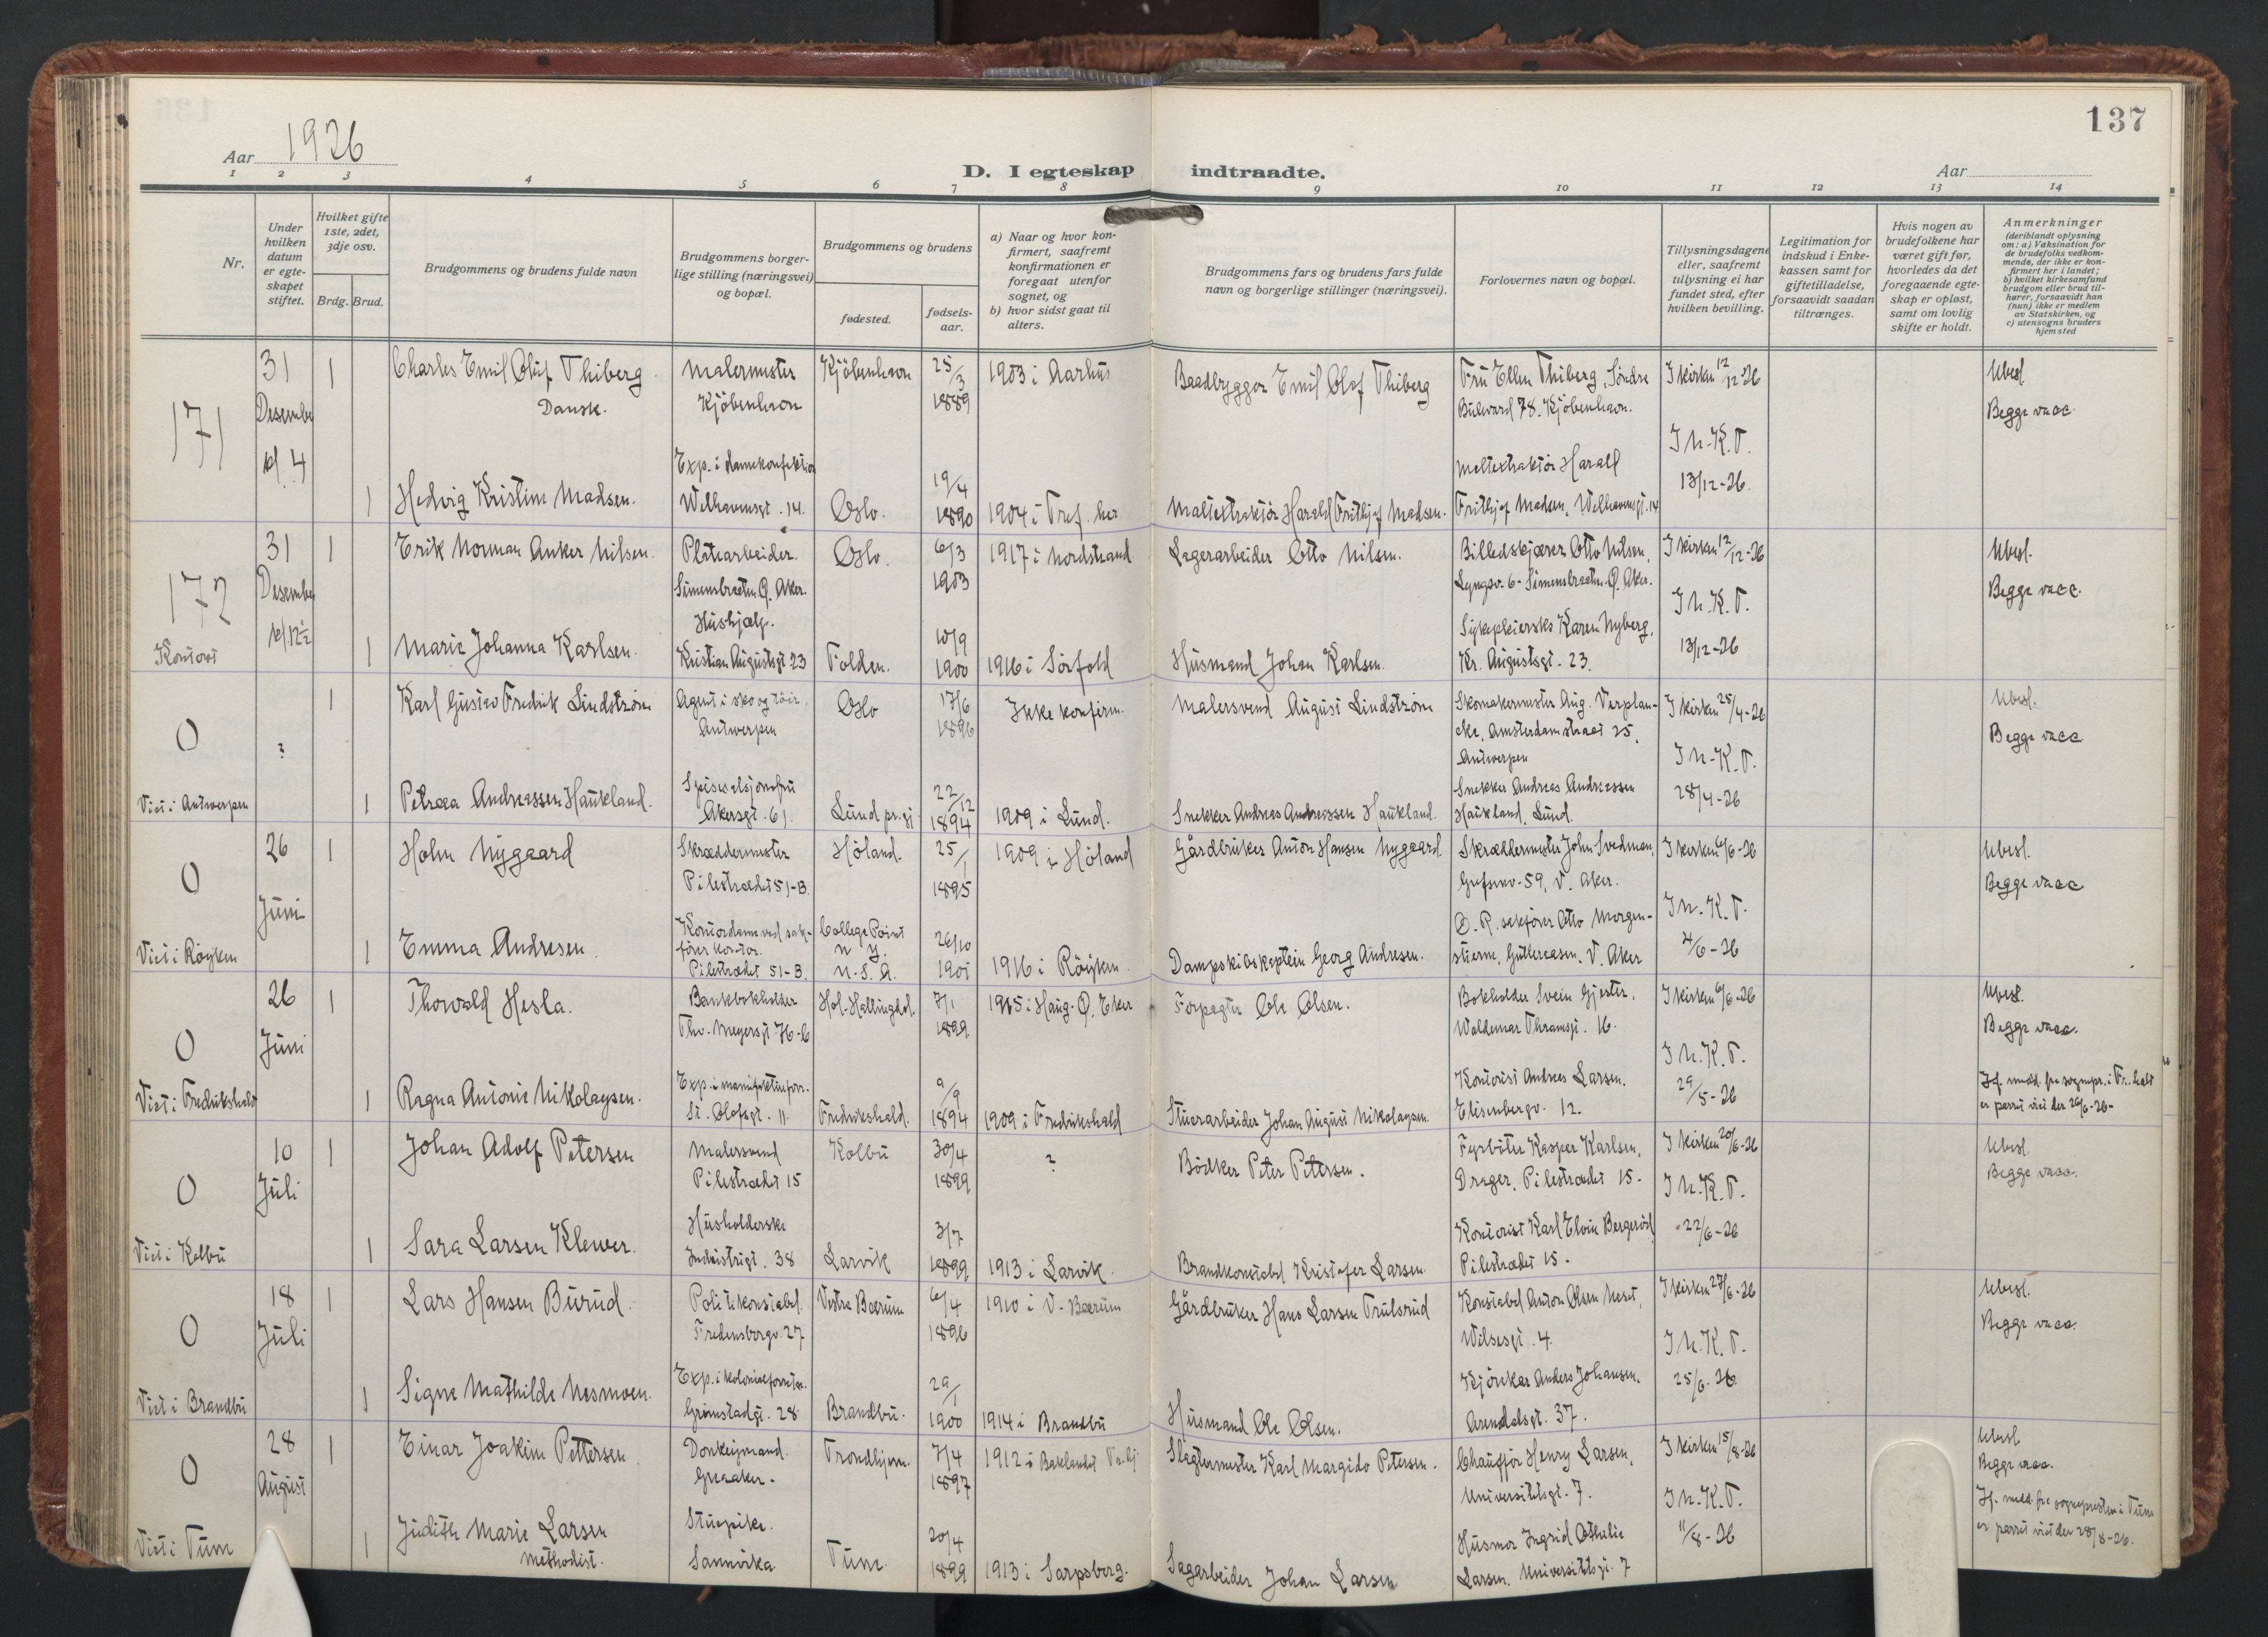 137
Aar 1926
D. I egteskap indtraadte.
Aar
1 2 3 4 5 6 7 8 9 10 11 12 13 14
Nr.
Under
hvilken
datum
er egte-
skapet
stiftet.
Hvilket gifte
1ste, 2det,
3dje osv.
Brdg. Brud.
Brudgommens og brudens fulde navn
Brudgommens borger-
lige stilling (næringsvei)
og bopæl.
Brudgommens og brudens
fødested.
fødsels-
aar.
a) Naar og hvor kon-
firmert, saafremt
konfirmationen er
foregaat utenfor
sognet, og
b) hvor sidst gaat til
alters.
Brudgommens fars og brudens fars fulde
navn og borgerlige stillinger (næringsvei).
Forlovernes navn og bopæl.
Tillysningsdagene
eller, saafremt
tillysning ei har
fundet sted, efter
hvilken bevilling.
Legitimation for
indskud i Enke-
kassen samt for
giftetilladelse,
forsaavidt saadan
tiltrænges.
Hvis nogen av
brudefolkene har
været gift før,
hvorledes da det
foregaaende egte-
skap er opløst,
samt om lovlig
skifte er holdt.
Anmerkninger
(deriblandt oplysning
om: a) Vaksination for
de brudefolks vedkom-
mende, der ikke er kon-
firmert her i landet;
b) hvilket kirkesamfund
brudgom eller brud til-
hører, forsaavidt han
(hun) ikke er medlem
av Statskirken, og
c) utensogns bruders
hjemsted
171
31
Desember
kl. 4
1
Charles Emil Oluf Thiberg
Dansk.
Malermester
Kjøbenhavn
Kjøbenhavn
25/3
1889
1903 i Aarhus
Baadbygger Emil Olof Thiberg
Fru Ellen Thiberg, Söndre
Bulevard 78. Kjöbenhavn.
I kirken 12/12-26
I N.K.T.
13/12-26.
Ubesl.
Begge vacc.
1
Hedvig Kristine Madsen.
Exp. i damekonfektion
Welhavensgt. 14.
Oslo.
19/4
1890
1904 i Tref. her
Maltextraktör Harald Frithjof Madsen.
Maltextraktör Harald
Frithjof Madsen, Welhavensgt. 14
172
Kontoret
31
Desember
kl 12½
1
Erik Norman Anker Nilsen.
Platearbeider.
Simensbraaten Ø. Aker.
Oslo.
6/3
1903
1917 i Nordstrand
Lagerarbeider Otto Nilsen.
Billedskjærer Otto Nilsen,
Lyngv. 6 - Simensbraaten Ø. Aker.
I kirken 12/12-26
I N.K.T.
13/12-26
Ubesl.
Begge vacc.
1
Marie Johanna Karlsen.
Hushjælp.
Kristian Augustsgt 23
Folden.
10/9
1900
1916 i Sörfold
Husmand Johan Karlsen.
Sykepleierske Karen Nyberg,
Kr. Augustsgt. 23.
0
Viet i Antwerpen
?
1
Karl Gustav Fredrik Lindström
Agent i sko og töir
Antwerpen
Oslo
17/6
1896
Ikke konfirm.
Malersvend August Lindström
Skomakermester Aug. Verplan-
cke, Amsterdamstraat 25,
Antwerpen
I kirken 25/4-26
I N.K.T.
28/4-26
Ubesl.
Begge vacc
1
Petræa Andreassen Haukland.
Spisesalsjomfru
Akersgt. 61.
Lund pr.gj.
22/12
1894
1909 i Lund.
Snekker Andreas Andreassen Haukland.
Snekker Andreas Andreassen
Haukland, Lund.
0
Viet i Röyken
26
Juni
1
Holm Nygaard
Skræddermester
Pilestrædet 51-B.
Höland.
25/1
1895
1909 i Höland
Gårdbruker Anton Hansen Nygaard.
Skræddermester John Svedman,
Grefsenv. 59, V. Aker.
I kirken 6/6-26
I N.K.T.
4/6-26
Ubesl.
Begge vacc
1
Emma Andresen.
Kontordame ved sak-
förer kontor.
Pilestrædet 51-B.
College Point
N Y.
U.S.A.
26/10
1901
1916 i Röyken.
Dampskibskaptein Georg Andresen.
O. R. sakförer Otto Morgen-
stierne, Gullerasen. V. Aker
0
Viet i Fredrikshald
26
Juni
1
Thorvald Hesla.
Bankbokholder
Thv. Meyersgt 76-b
Hol-Hallingdal.
7/1
1899
1915 i Haug. Ø. Eker
Forpagter Ole Olsen.
Bokholder Svein Gjester,
Waldemar Thranesgt. 16.
I kirken 6/6-26
I N.K.T.
29/5-26
Ubesl.
Begge vacc.
Jf. medd. fra sognepr. i Fr.hald
er parret viet der 26/6-26-
1
Ragna Antonie Nikolaysen.
Exp. i manufakturforr.
St. Olafsgt. 11
Fredrikshald.
9/9
1894
1909 i Fredrikshald
Stuerarbeider Johan August Nikolaysen.
Kontorist Andreas Larsen.
Elisenbergv. 12.
0
Viet i Kolbu
10
Juli
1
Johan Adolf Petersen
Malersvend
Pilestrædet 15
Kolbu
30/4
1899
?
Bödker Peter Petersen.
Fyrböter Kasper Karlsen,
Drager, Pilestrædet 15.
I kirken 20/6-26
I N.K.T.
22/6-26
Ubesl.
Begge vacc.
1
Sara Larsen Klewer.
Husholderske
Industrigt. 38
Larvik
3/7
1899
1913 i Larvik.
Brandkonstabel Kristofer Larsen.
Kontorist Karl Elvin Bergeröd
Pilestrædet 15.
0
Viet i Brandbu
18
Juli
1
Lars Hansen Burud.
Politikonstabel.
Fredensborgv. 27
Vestre Bærum
6/4
1896
1910 i V. Bærum
Gårdbruker Hans Larsen Trulsrud
Konstabel Anton Olsen Neset,
Wilsesgt. 4.
I kirken 27/6-26
I N.K.T.
25/6-26
Ubesl.
Begge vacc.
1
Signe Mathilde Nesmoen.
Exp. i kolonialforretn.
Grimstadgt. 28
Brandbu.
29/1
1900
1914 i Brandbu
Husmand Ole Olsen.
Kjörekar Anders Johansen,
Arendalsgt. 37.
0
Viet i Tune
28
August
1
Einar Joakim Pettersen
Donkeymand.
Greaaker.
Trondhjem.
7/4
1897
1912 i Baklandet Tr.hj.
Slagtermester Karl Margido Petersen.
Chauffør Henry Larsen,
Universitetsgt. 7.
I kirken 15/8-26
I N.K.T.
11/8-26
Ubesl.
Begge vacc.
Jf. medd. fra sognepresten i Tune
er parret viet der 28/8-26.
1
Judith Marie Larsen
Methodist.
Stuepike.
Sannvika
Tune
20/4
1899
1913 i Sarpsborg.
Sagarbeider Johan Larsen
Husmor Ingrid Othilie
Larsen. Universitetsgt. 7